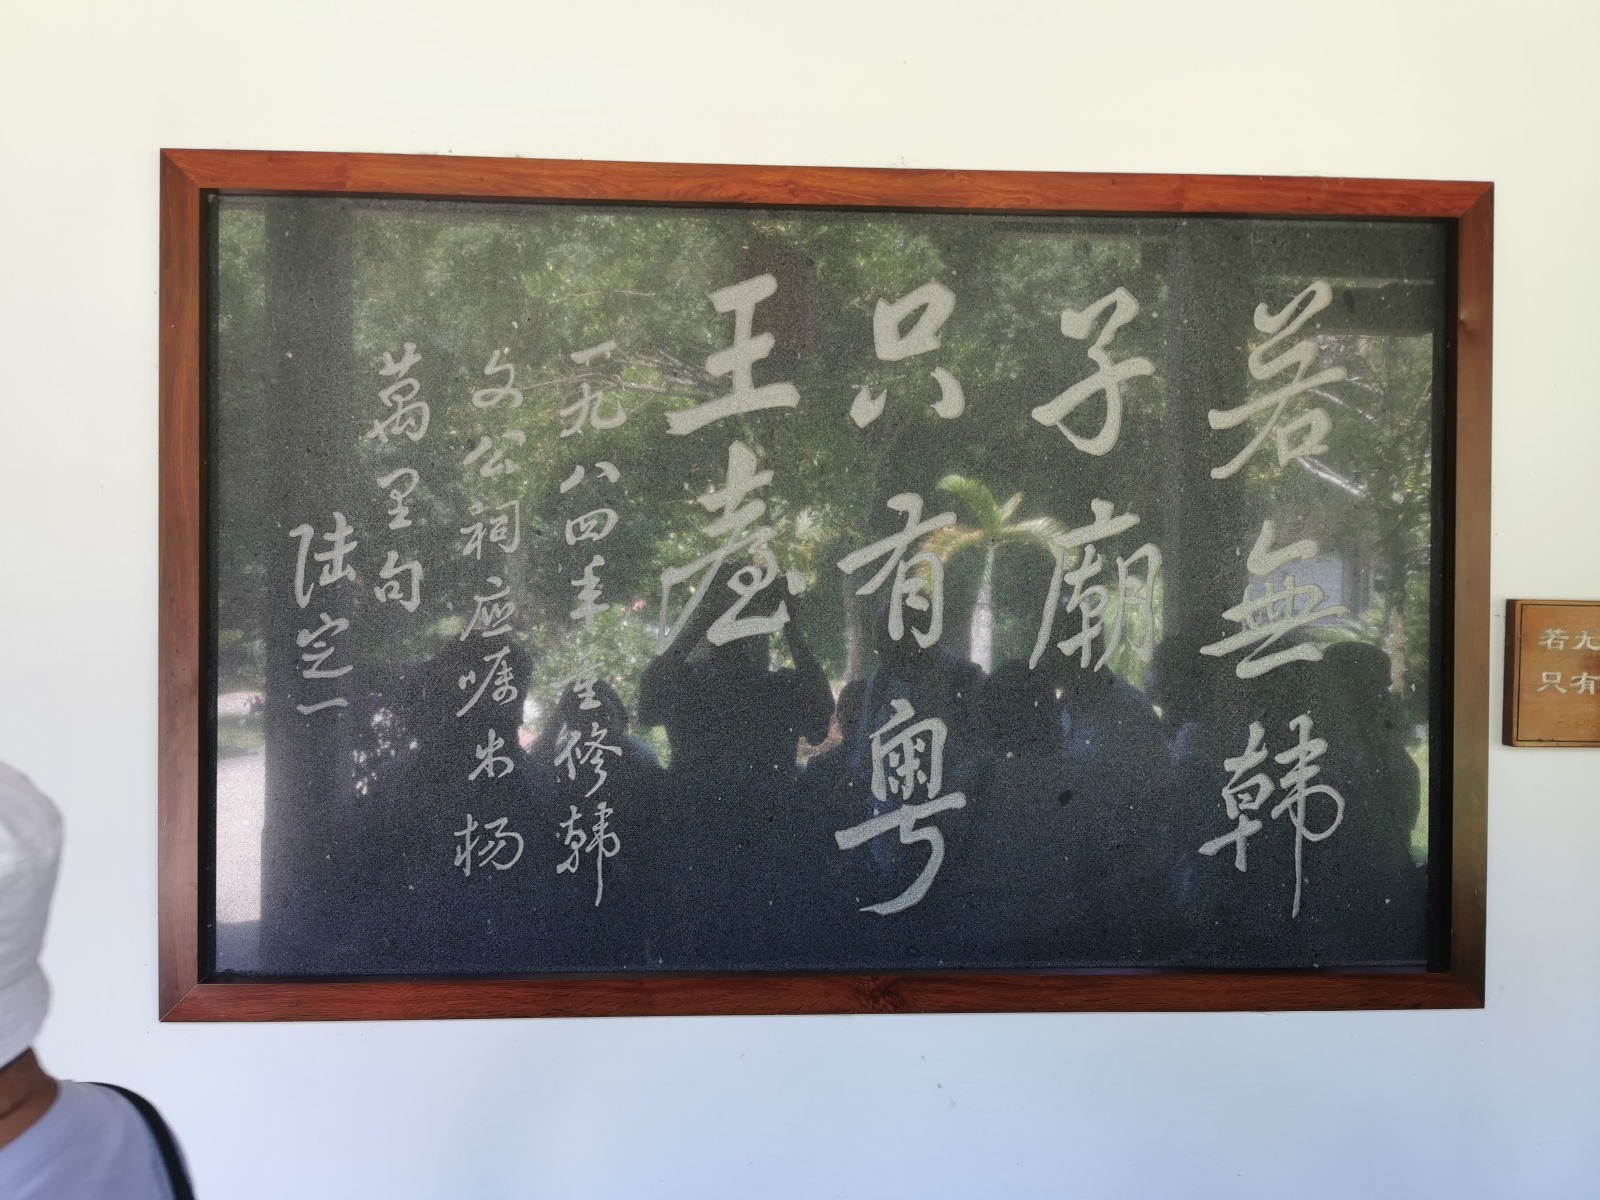 若無韩
子廟
只有粤
王臺
一九八四年重修韩
文公祠应嘱书杨
萬里句
陆定一
若无
只有